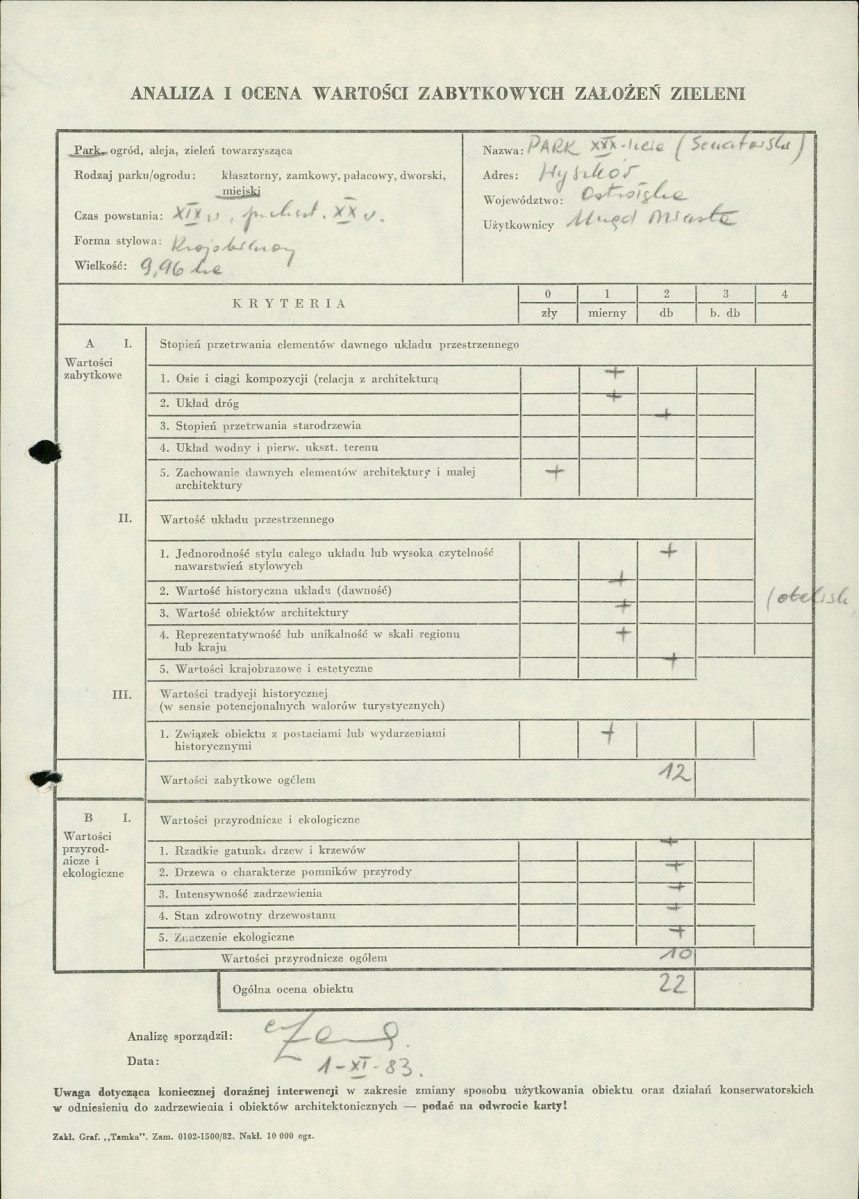 ANALIZA I OCENA WARTOŚCI ZABYTKOWYCH ZAŁOŻEŃ ZIELENI
Park, ogród, aleja, zieleń towarzysząca
Rodzaj parku/ogrodu: klasztorny, zamkowy, pałacowy, dworski,
miejski
Czas powstania: XIX w, XX w.
Forma stylowa: Krajobrazowy
Wielkość: 9,96 ha
Nazwa: PARK XXX-lecia (Senatorska)
Adres: Wyszków
Województwo: Ostrołęka
Użytkownicy Urząd Miasta
KRYTERIA
0 1 2 3 4
zły mierny db b. db
A I. Stopień przetrwania elementów dawnego układu przestrzennego
Wartości
zabytkowe
1. Osie i ciągi kompozycji (relacja z architekturą +
2. Układ dróg +
3. Stopień przetrwania starodrzewia +
4. Układ wodny i pierw. ukszt. terenu
5. Zachowanie dawnych elementów architektury i małej +
architektury
II. Wartość układu przestrzennego
1. Jednorodność stylu całego układu lub wysoka czytelność +
nawarstwień stylowych
2. Wartość historyczna układu (dawność) +
3. Wartość obiektów architektury + (obelisk
4. Reprezentatywność lub unikalność w skali regionu +
lub kraju
5. Wartości krajobrazowe i estetyczne +
III. Wartości tradycji historycznej
(w sensie potencjonalnych walorów turystycznych)
1. Związek obiektu z postaciami lub wydarzeniami +
historycznymi
Wartości zabytkowe ogółem 12
B I. Wartości przyrodnicze i ekologiczne
Wartości
przyrod-
nicze i
ekologiczne
1. Rzadkie gatunki drzew i krzewów +
2. Drzewa o charakterze pomników przyrody +
3. Intensywność zadrzewienia +
4. Stan zdrowotny drzewostanu +
5. Znaczenie ekologiczne +
Wartości przyrodnicze ogółem 10
Ogólna ocena obiektu 22
Analizę sporządził:
Data: 1-XI-83.
Uwaga dotycząca koniecznej doraźnej interwencji w zakresie zmiany sposobu użytkowania obiektu oraz działań konserwatorskich
w odniesieniu do zadrzewienia i obiektów architektonicznych — podać na odwrocie karty!
Zakł. Graf. „Tamka". Zam. 0102-1500/82. Nakł. 10 000 egz.